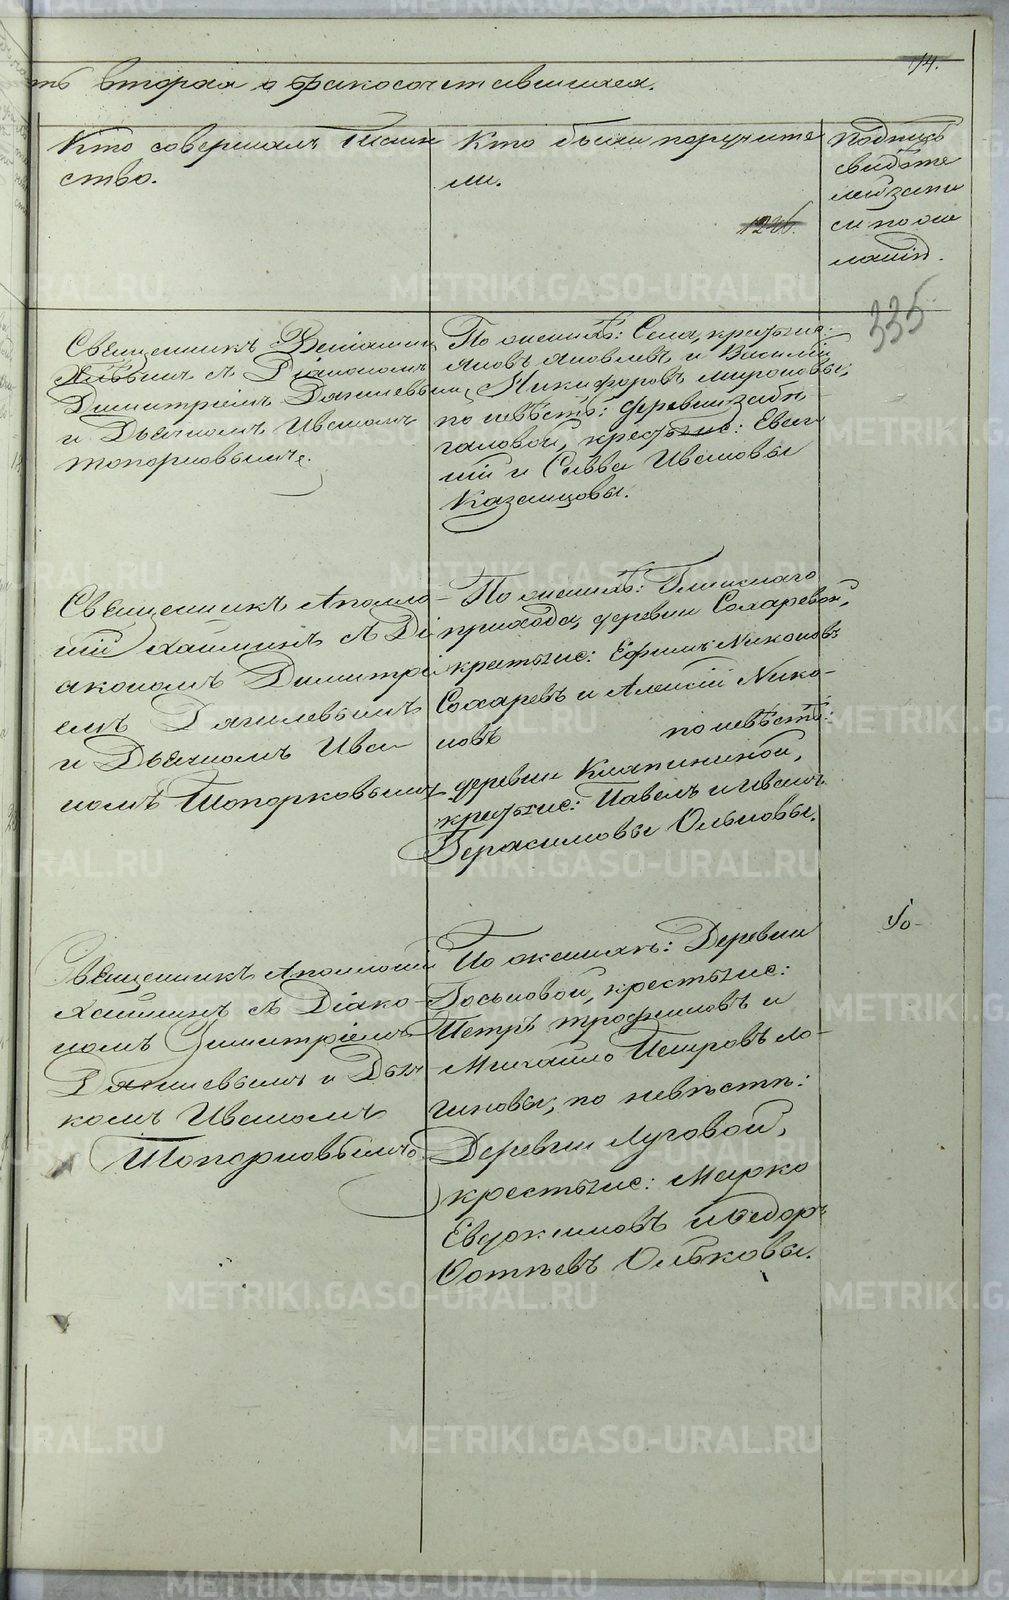 14.
ть вторая о бракосочетавшихся.
Кто совершалъ Таин
ство.
Кто были поручите
ли.
Подпись
свидѣте
лей запи
си по же
ланію.
335
Священникъ Веніаминъ
съ Діакономъ
Димитріемъ
и Дьячкомъ Иваномъ
Топорковымъ.
По женихѣ: Села, крестьяне:
Яковлевъ и Василій
Никифоровъ Мироновы;
по невѣстѣ: деревни
крестьяне: Евге
ній и Савва Ивановы
Казанцовы.
Священникъ Аполло
ній съ Ді
акономъ Димитрі
емъ
и Дьячкомъ Ива
номъ Топорковымъ
По женихѣ:
прихода, деревни Сохаревой,
крестьяне: Ефимъ Никоновъ
Сохаревъ и Алексій Нико-
новъ по невѣстѣ:
деревни Кляпининой,
крестьяне: Павелъ и Иванъ
Герасимовы Ольковы.
Священникъ Аполлоній
съ Діако-
номъ Димитріемъ
и Дьяч
комъ Иваномъ
Топорковымъ
По женихѣ: Деревни
Госьковой, крестьяне:
Петръ Трофимовъ и
Михайло Петровъ Ло-
гиновы; по невѣстѣ:
Деревни Луговой,
крестьяне: Марко
Евдокимовъ и Ѳедоръ
Фотіевъ Ольковы.
METRIKI.GASO-URAL.RU